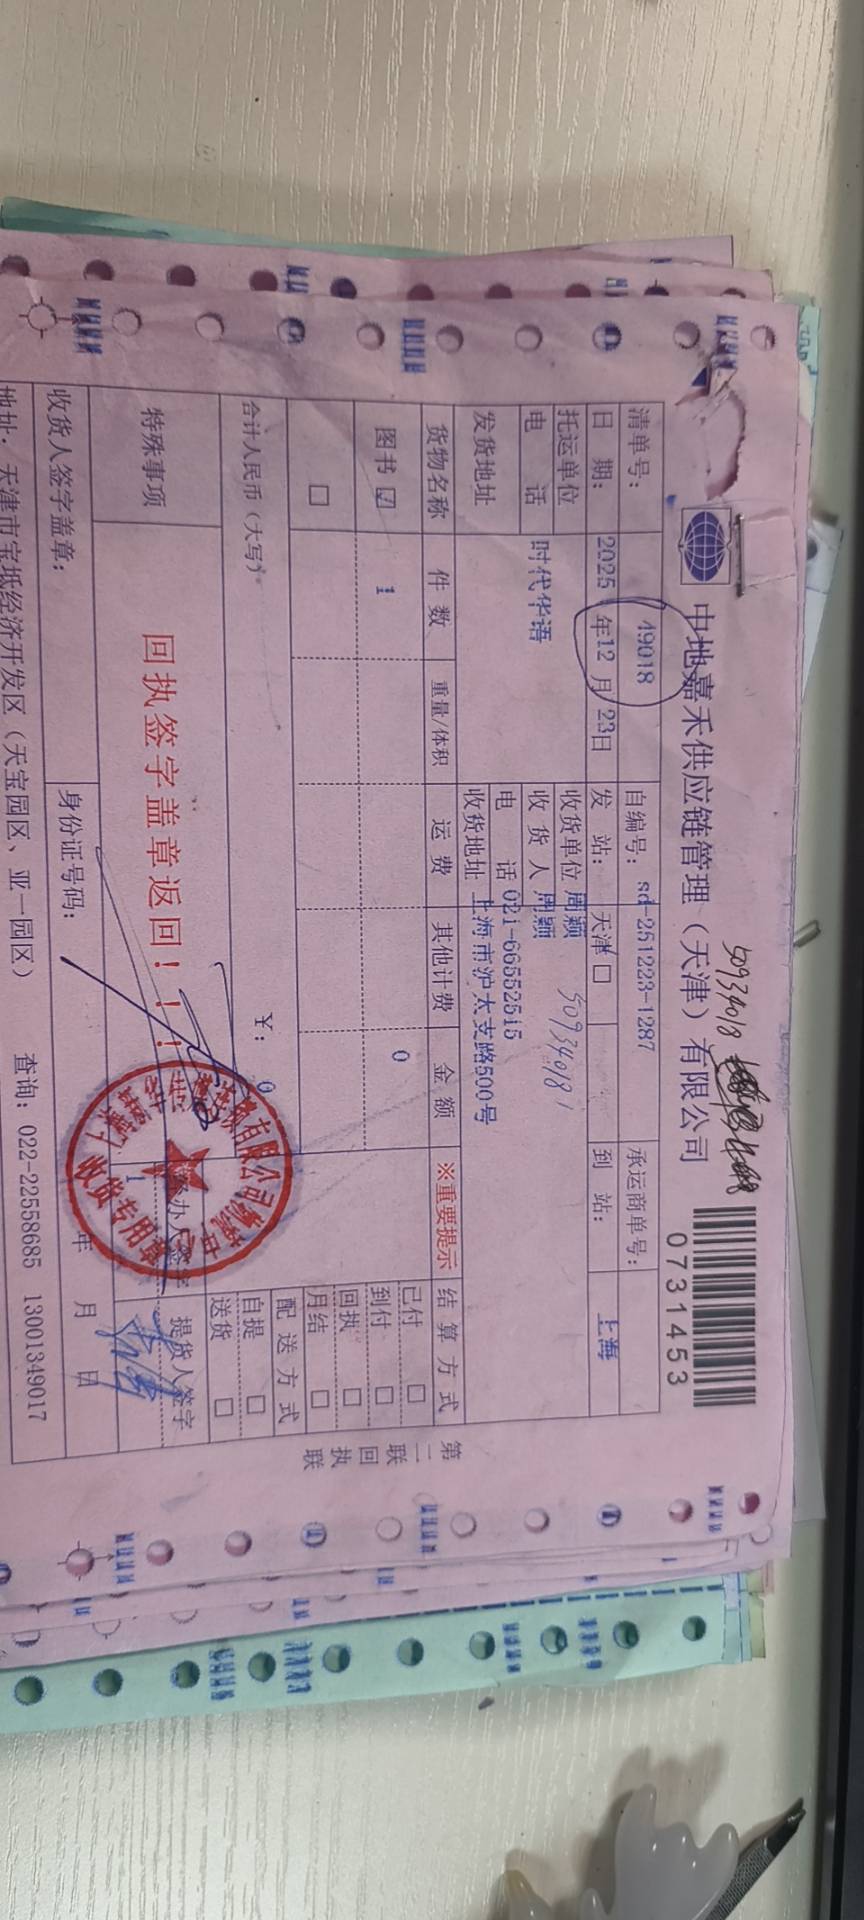 50934018
中地嘉禾供应链管理（天津）有限公司
0731453
清单号： 49018 自编号： sd-251223-1287 承运商单号：
日 期： 2025 年12 月 23日 发 站： 天津 □ 到 站： 上海
托运单位 时代华语 收货单位 周颖 50934018
电 话 收 货 人 周颖
电 话 021-66552515
发货地址 收货地址 上海市沪太支路500号
货物名称 件 数 重量/体积 运 费 其他计费 金 额 ※重要提示 结 算 方 式
图书 ☑ 1 0 已付 □
到付 □
□ 回执 □
月结 □
合计人民币（大写） ￥： 0 配 送 方 式
自提 □
送货 □
特殊事项 回执签字盖章返回！！！ 经办人签字 提货人签字
1
收货人签字盖章： 身份证号码： 年 月 日
地址：天津市宝坻经济开发区（天宝园区、亚一园区） 查询：022-22558685 13001349017
第二联 回执联
收货专用章